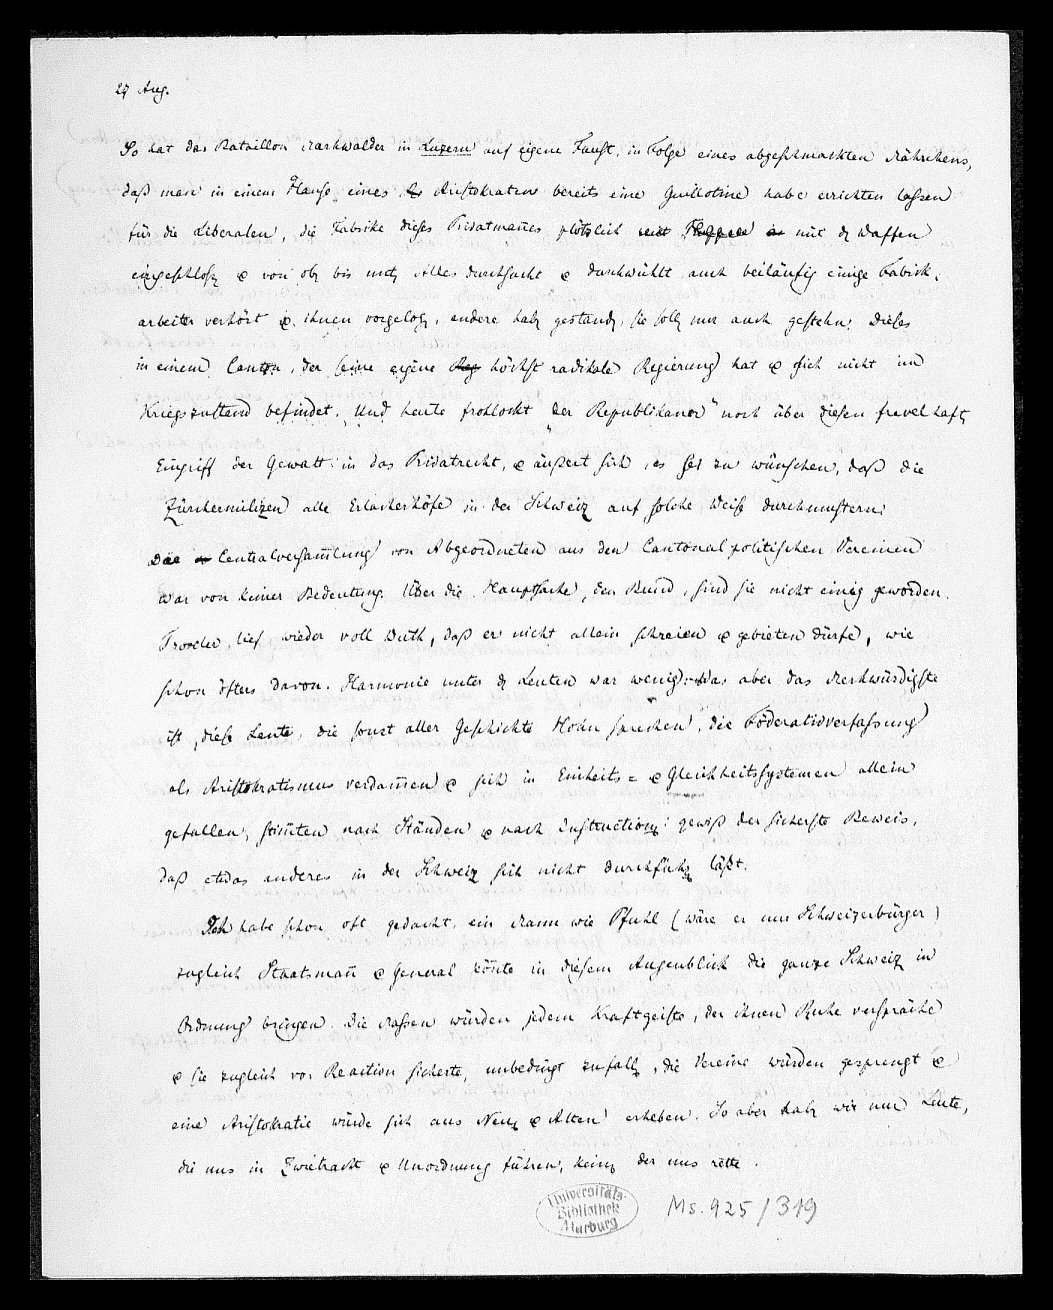 27 Aug.
So hat das Bataillon Marxwalder in Luzern auf eigene Faust, in Folge eines abgeschmackten Mährchens,
daß man in einem Hause eines Aristokraten bereits eine Guillotine habe errichten lassen
für die Liberalen, die Fabrike dieses Privatman̄es plötzlich mit Truppen mit d Waffen
eingeschloß & von ob bis unt alles durchsucht & durchwühlt auch beiläufig einige Fabrik-
arbeiter verhört & ihnen vorgelog, andere hab gestand, sie soll nur auch gestehn! Dieses
in einem Canton, der seine eigene Reg höchst radikale Regierung hat & sich nicht im
Kriegszustand befindet. Und heute frohlockt "der Republikaner" noch über diesen frevelhaft
Eingriff der Gewalt in das Privatrecht, & äußert sich, es sei zu wünschen, daß die
Zürchermilizen alle Erlacherhöfe in der Schweiz auf solche Weise durchmustern!
Die Centralversam̄lung von Abgeordneten aus den Cantonal politischen Vereinen
war von keiner Bedeutung. Über die Hauptsache, den Bund, sind sie nicht einig geworden.
Troxler lief wieder voll Wuth, daß er nicht allein schreien & gebieten dürfe, wie
schon öfters davon. Harmonie unter d Leuten war wenig. Was aber das Merkwürdigste
ist, diese Leute, die sonst aller Geschichte Hohn sprechen, die Föderativverfassung
als Aristokratismus verdam̄en & sich in Einheits- & Gleichheitssystemen allein
gefallen, stim̄ten nach Ständen & nach Instruction: gewiß der sicherste Beweis,
daß etwas anderes in der Schweiz sich nicht durchführ läßt.
Ich habe schon oft gedacht, ein Mann wie Pfuhl (wäre er nur Schweizerbürger)
zugleich Staatsman̄ & General kön̄te in diesem Augenblick die ganze Schweiz in
Ordnung bringen. Die Massen würden jedem Kraftgeiste, der ihnen Ruhe verspräche
& sie zugleich vor Reaction sicherte, unbedingt zufall, die Vereine würden gesprengt &
eine Aristokratie würde sich aus Neu & Alten erheben. So aber hab wir nur Leute,
die uns in Zwietracht & Unordnung führen, kein der uns rette.
Universitäts-
Bibliothek
Marburg
Ms. 925/319